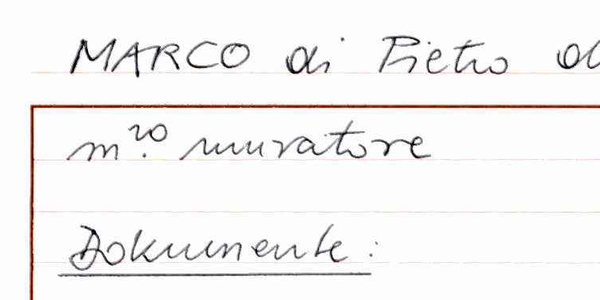 MARCO di Pietro
m.ro muratore
Dokumente: